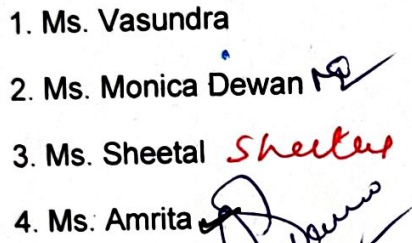 1. Ms. Vasundra
2. Ms. Monica Dewan
3. Ms. Sheetal Sheetal
4. Ms. Amrita